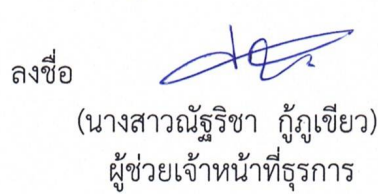 ลงชื่อ
(นางสาวณัฐริชา กู้ภูเขียว)
ผู้ช่วยเจ้าหน้าที่ธุรการ